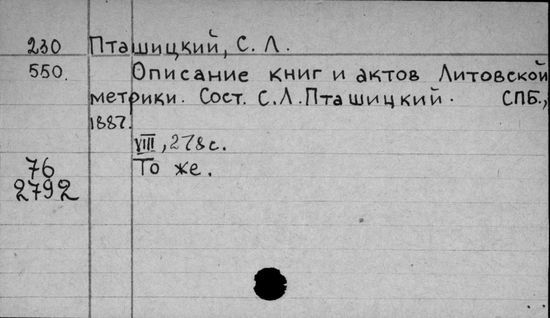 230 Пташицкий, С. Л.
550. Описание книг и актов Литовской
метрики. Сост. С.Л.Пташицкий. СПБ.,
1887.
VIII, 278с.
76 То же.
2792